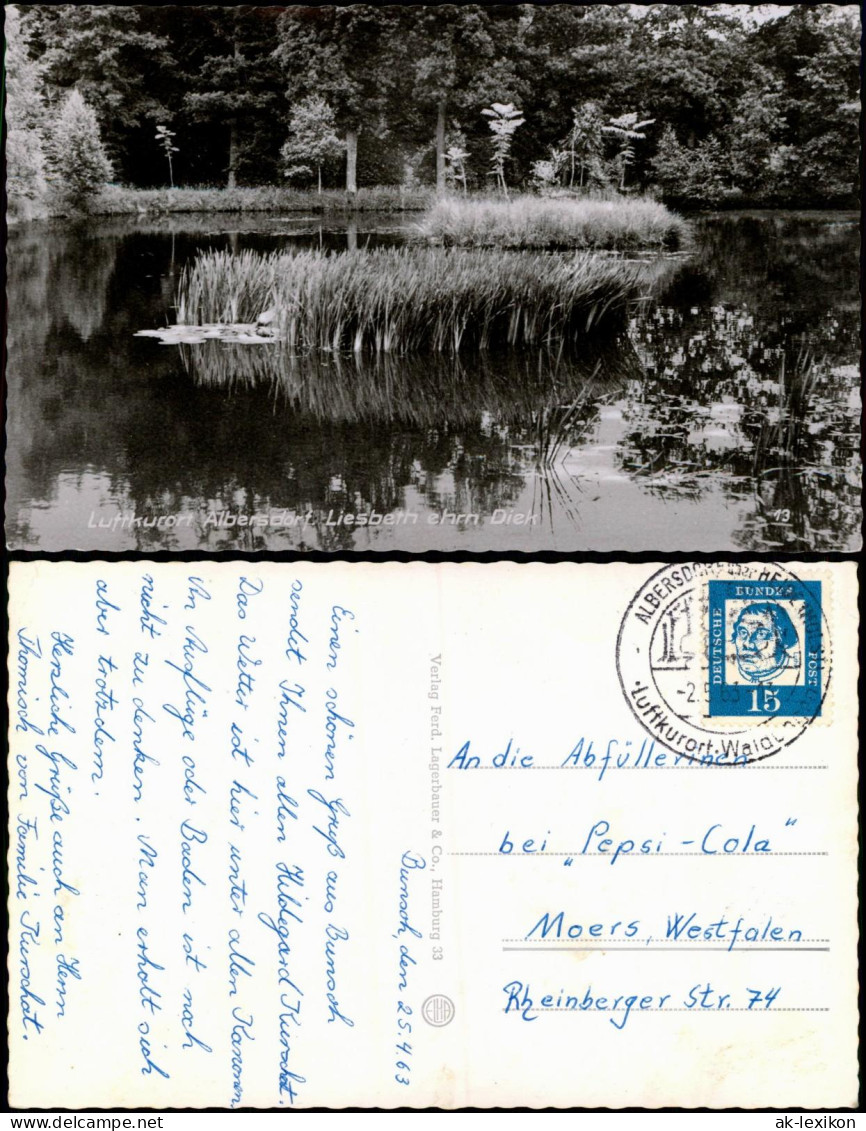 Luftkurort Albersdorf, Liesbeth ehrn Diek
13
Bunsoh, den 25.4.63
Einen schönen Gruß aus Bunsoh
sendet Ihnen allen Hildegard Kurschat.
Das Wetter ist hier unter allen Kanonen.
An Ausflüge oder Baden ist noch
nicht zu denken. Man erholt sich
aber trotzdem.
Herzliche Grüße auch an Herrn
Thomisch von Familie Kurschat.
Verlag Ferd. Lagerbauer & Co., Hamburg 33
ALBERSDORF über HEIDE
-2.5.63
Luftkurort · Wald
DEUTSCHE
BUNDES
POST
15
An die Abfüllerinen
bei „Pepsi-Cola"
Moers, Westfalen
Rheinberger Str. 74
ak-lexikon